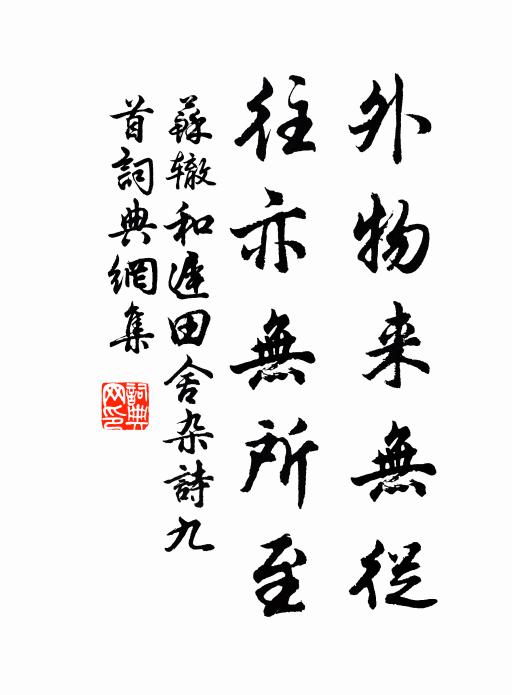 外物来無從
往亦無所至
蘇辙和遲田舍杂詩九
首詞典網集
詞典網印